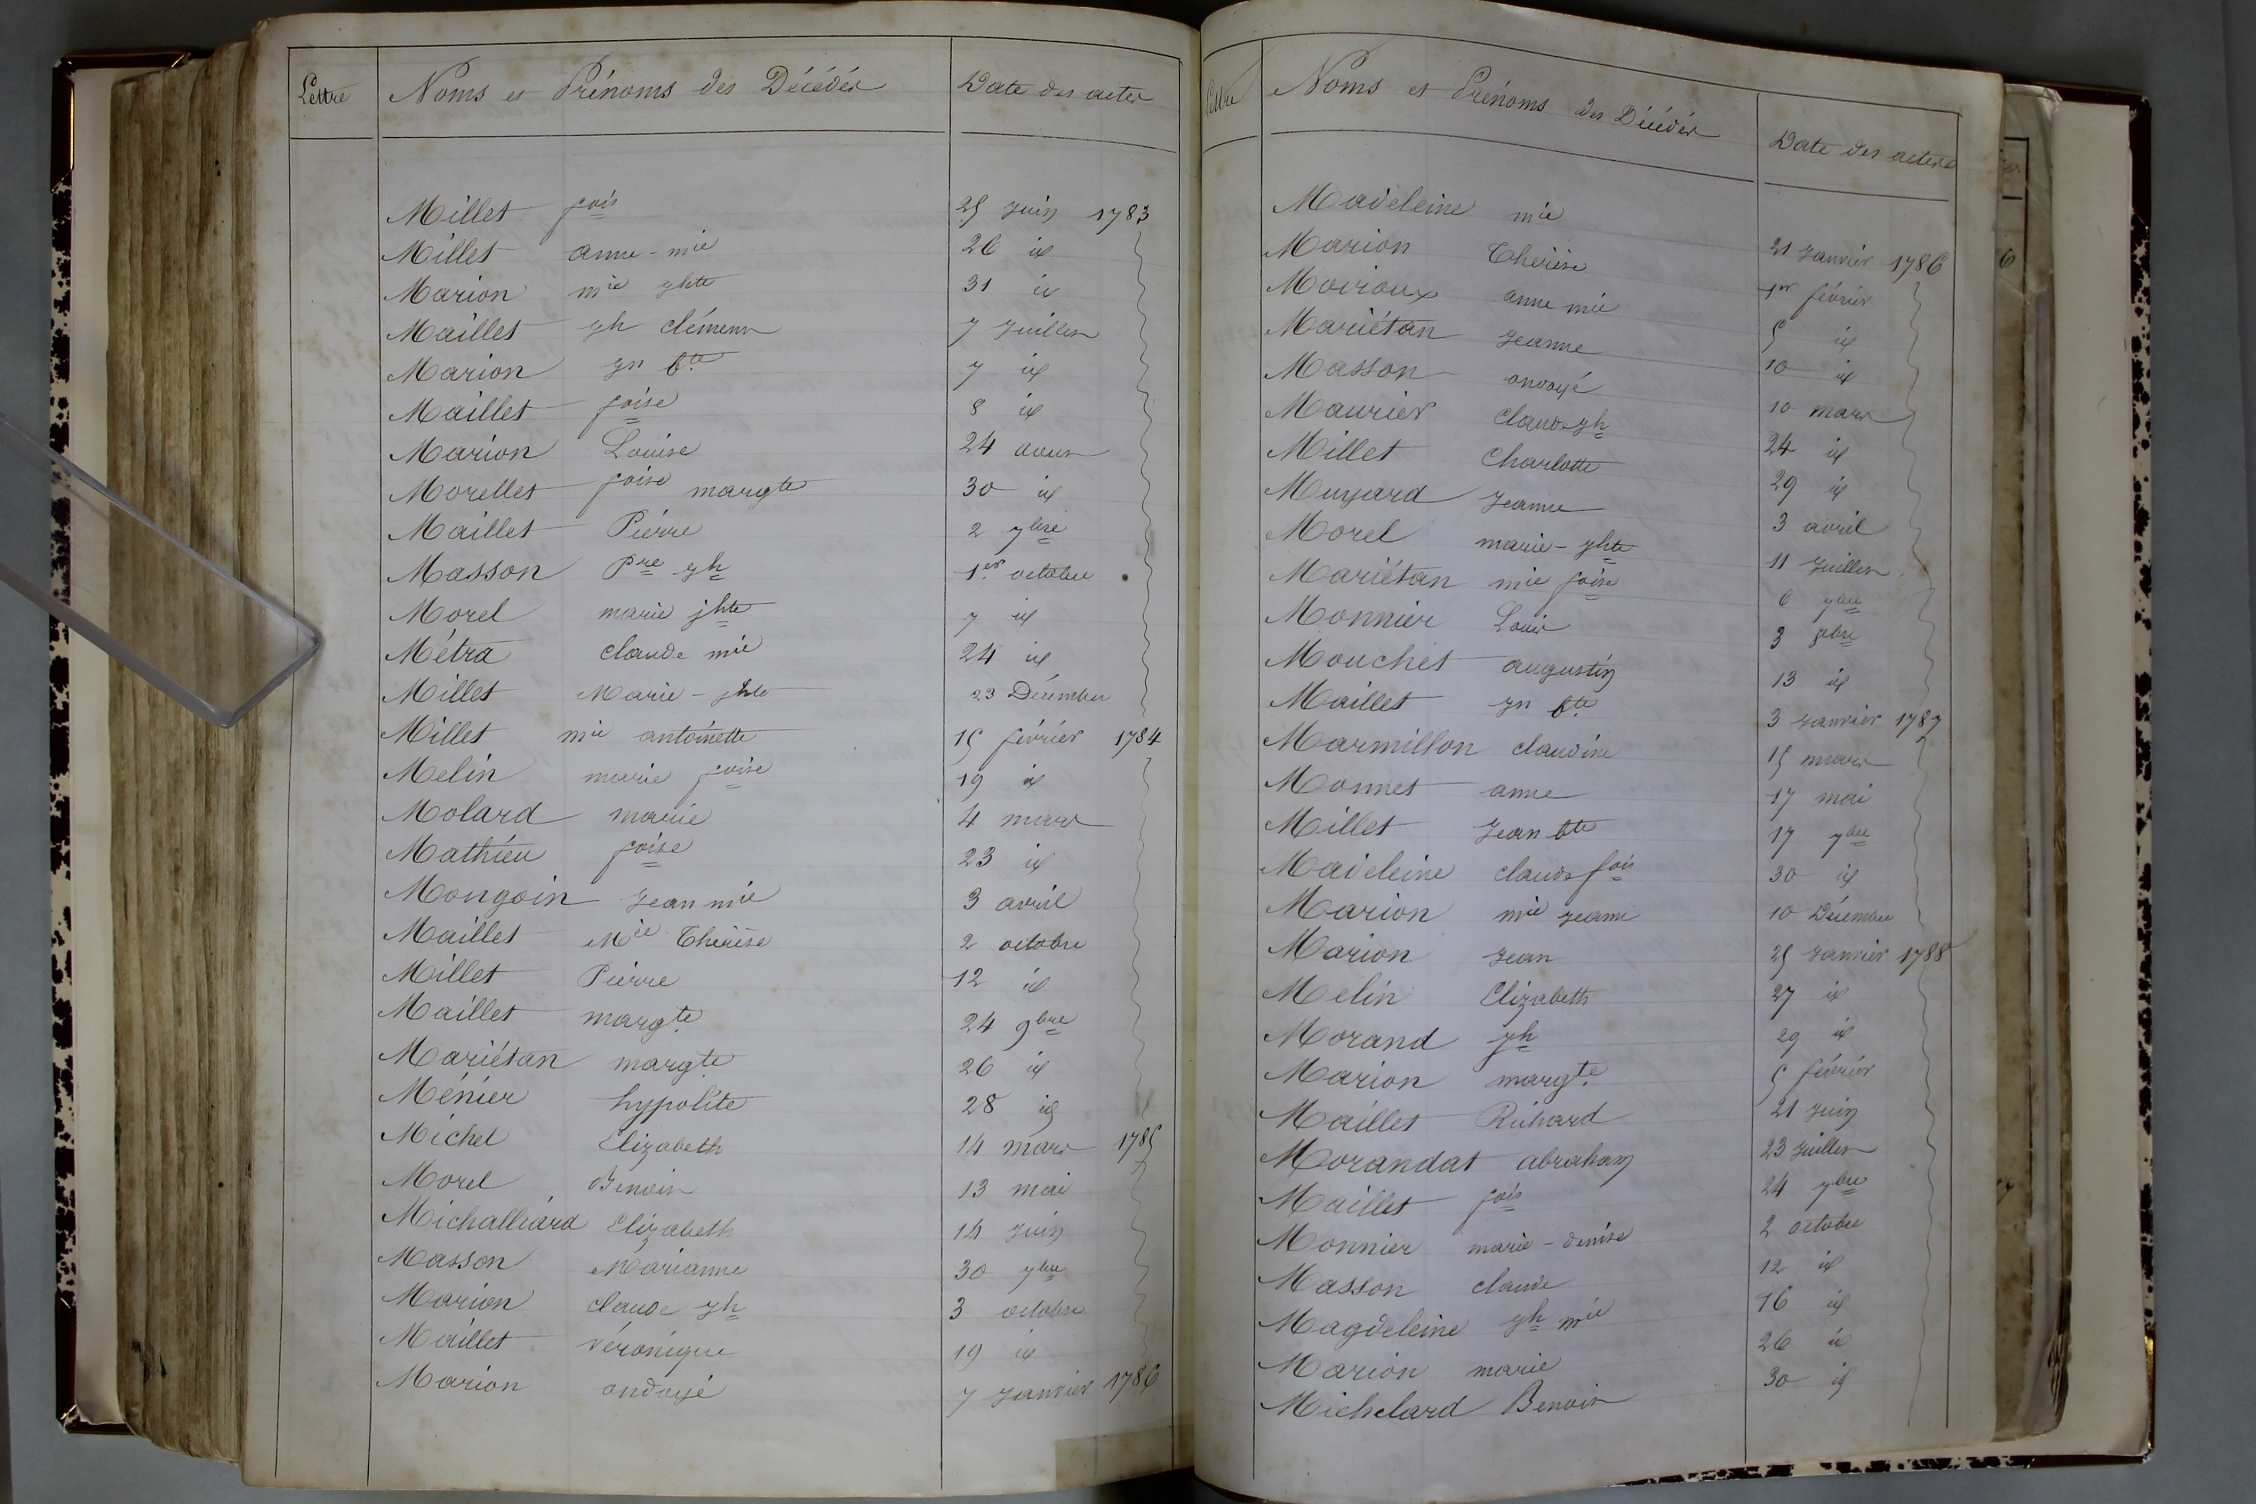 Lettre Noms et Prénoms des Décédés Date des actes
Millet fois 25 juin 1783
Millet anne-mie 26 id
Marion mie jhte 31 id
Maillet jh clément 7 juillet
Marion jn bte 7 id
Maillet foise 8 id
Marion Louise 24 aout
Morellet foise margte 30 id
Maillet Pierre 2 7bre
Masson Pre jh 1er octobre
Morel marie jhte 7 id
Métra claude mie 24 id
Millet Marie-jhte 23 Décembre
Millet mie antoinette 15 février 1784
Melin marie foise 19 id
Molard marie 4 mars
Mathieu foise 23 id
Mongoin Jean mie 3 avril
Maillet Mie Thérèse 2 octobre
Millet Pierre 12 id
Maillet margte 24 9bre
Mariétan margte 26 id
Ménier hypolite 28 id
Michel Elizabeth 14 mars 1785
Morel Benoit 13 mai
Michalliard Elizabeth 14 juin
Masson Marianne 30 7bre
Marion claude jh 3 octobre
Maillet véronique 19 id
Marion ondoyé 7 janvier 1786
Lettre Noms et Prénoms des Décédés Date des actes
Madeleine mie 21 janvier 1786
Marion Thérèse 1er février
Moiroux anne mie 5 id
Mariétan Jeanne 10 id
Masson ondoyé 10 mars
Maurier claude jh 24 id
Millet Charlotte 29 id
Muyard Jeanne 3 avril
Morel marie-jhte 11 juillet
Mariétan mie foise 6 7bre
Monnier Louis 3 8bre
Mouchet augustin 13 id
Maillet jn bte 3 janvier 1787
Marmillon claudine 15 mars
Monnet anne 17 mai
Millet Jean bte 17 7bre
Madeleine claude fois 30 id
Marion mie jeanne 10 Décembre
Marion Jean 25 janvier 1788
Melin Elizabeth 27 id
Morand jh 29 id
Marion margte 5 février
Maillet Richard 21 juin
Morandat abraham 23 juillet
Maillet fois 24 7bre
Monnier marie-denise 2 octobre
Masson claude 12 id
Magdeleine jh mie 16 id
Marion marie 26 id
Michelard Benoit 30 id